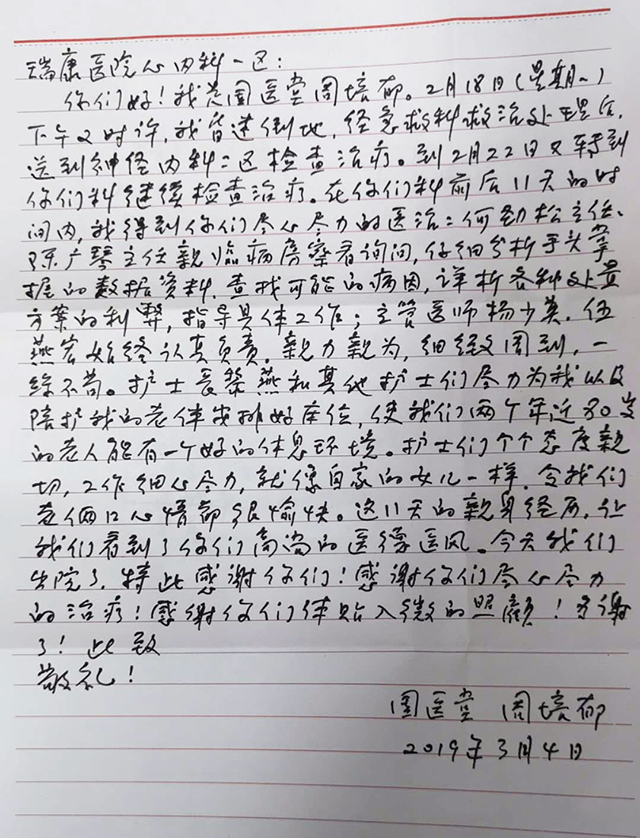 瑞康医院心内科一区：
你们好！我是国医堂周培郁。2月18日(星期一)
下午2时许，我昏迷倒地，经急救科救治处理后，
送到神经内科二区检查治疗。到2月22日又转到
你们科继续检查治疗。在你们科前后11天的时
间内，我得到你们尽心尽力的医治：何劲松主任、
陈广琴主任亲临病房察看询问，仔细分析手头掌
握的数据资料，查找可能的病因，详析各种处置
方案的利弊，指导具体工作；主管医师杨少英、伍
燕宏始终认真负责，亲力亲为，细致周到，一
丝不苟。护士长黎燕和其他护士们尽力为我以及
陪护我的老伴安排好床位，使我们两个年近80岁
的老人能有一个好的休息环境。护士们个个态度亲
切，工作细心尽力，就像自家的女儿一样，令我们
老俩口心情都很愉快。这11天的亲身经历，让
我们看到了你们高尚的医德医风。今天我们
出院了，特此感谢你们！感谢你们尽心尽力
的治疗！感谢你们体贴入微的照顾！多谢
了！此致
敬礼！
国医堂 周培郁
2019年3月4日